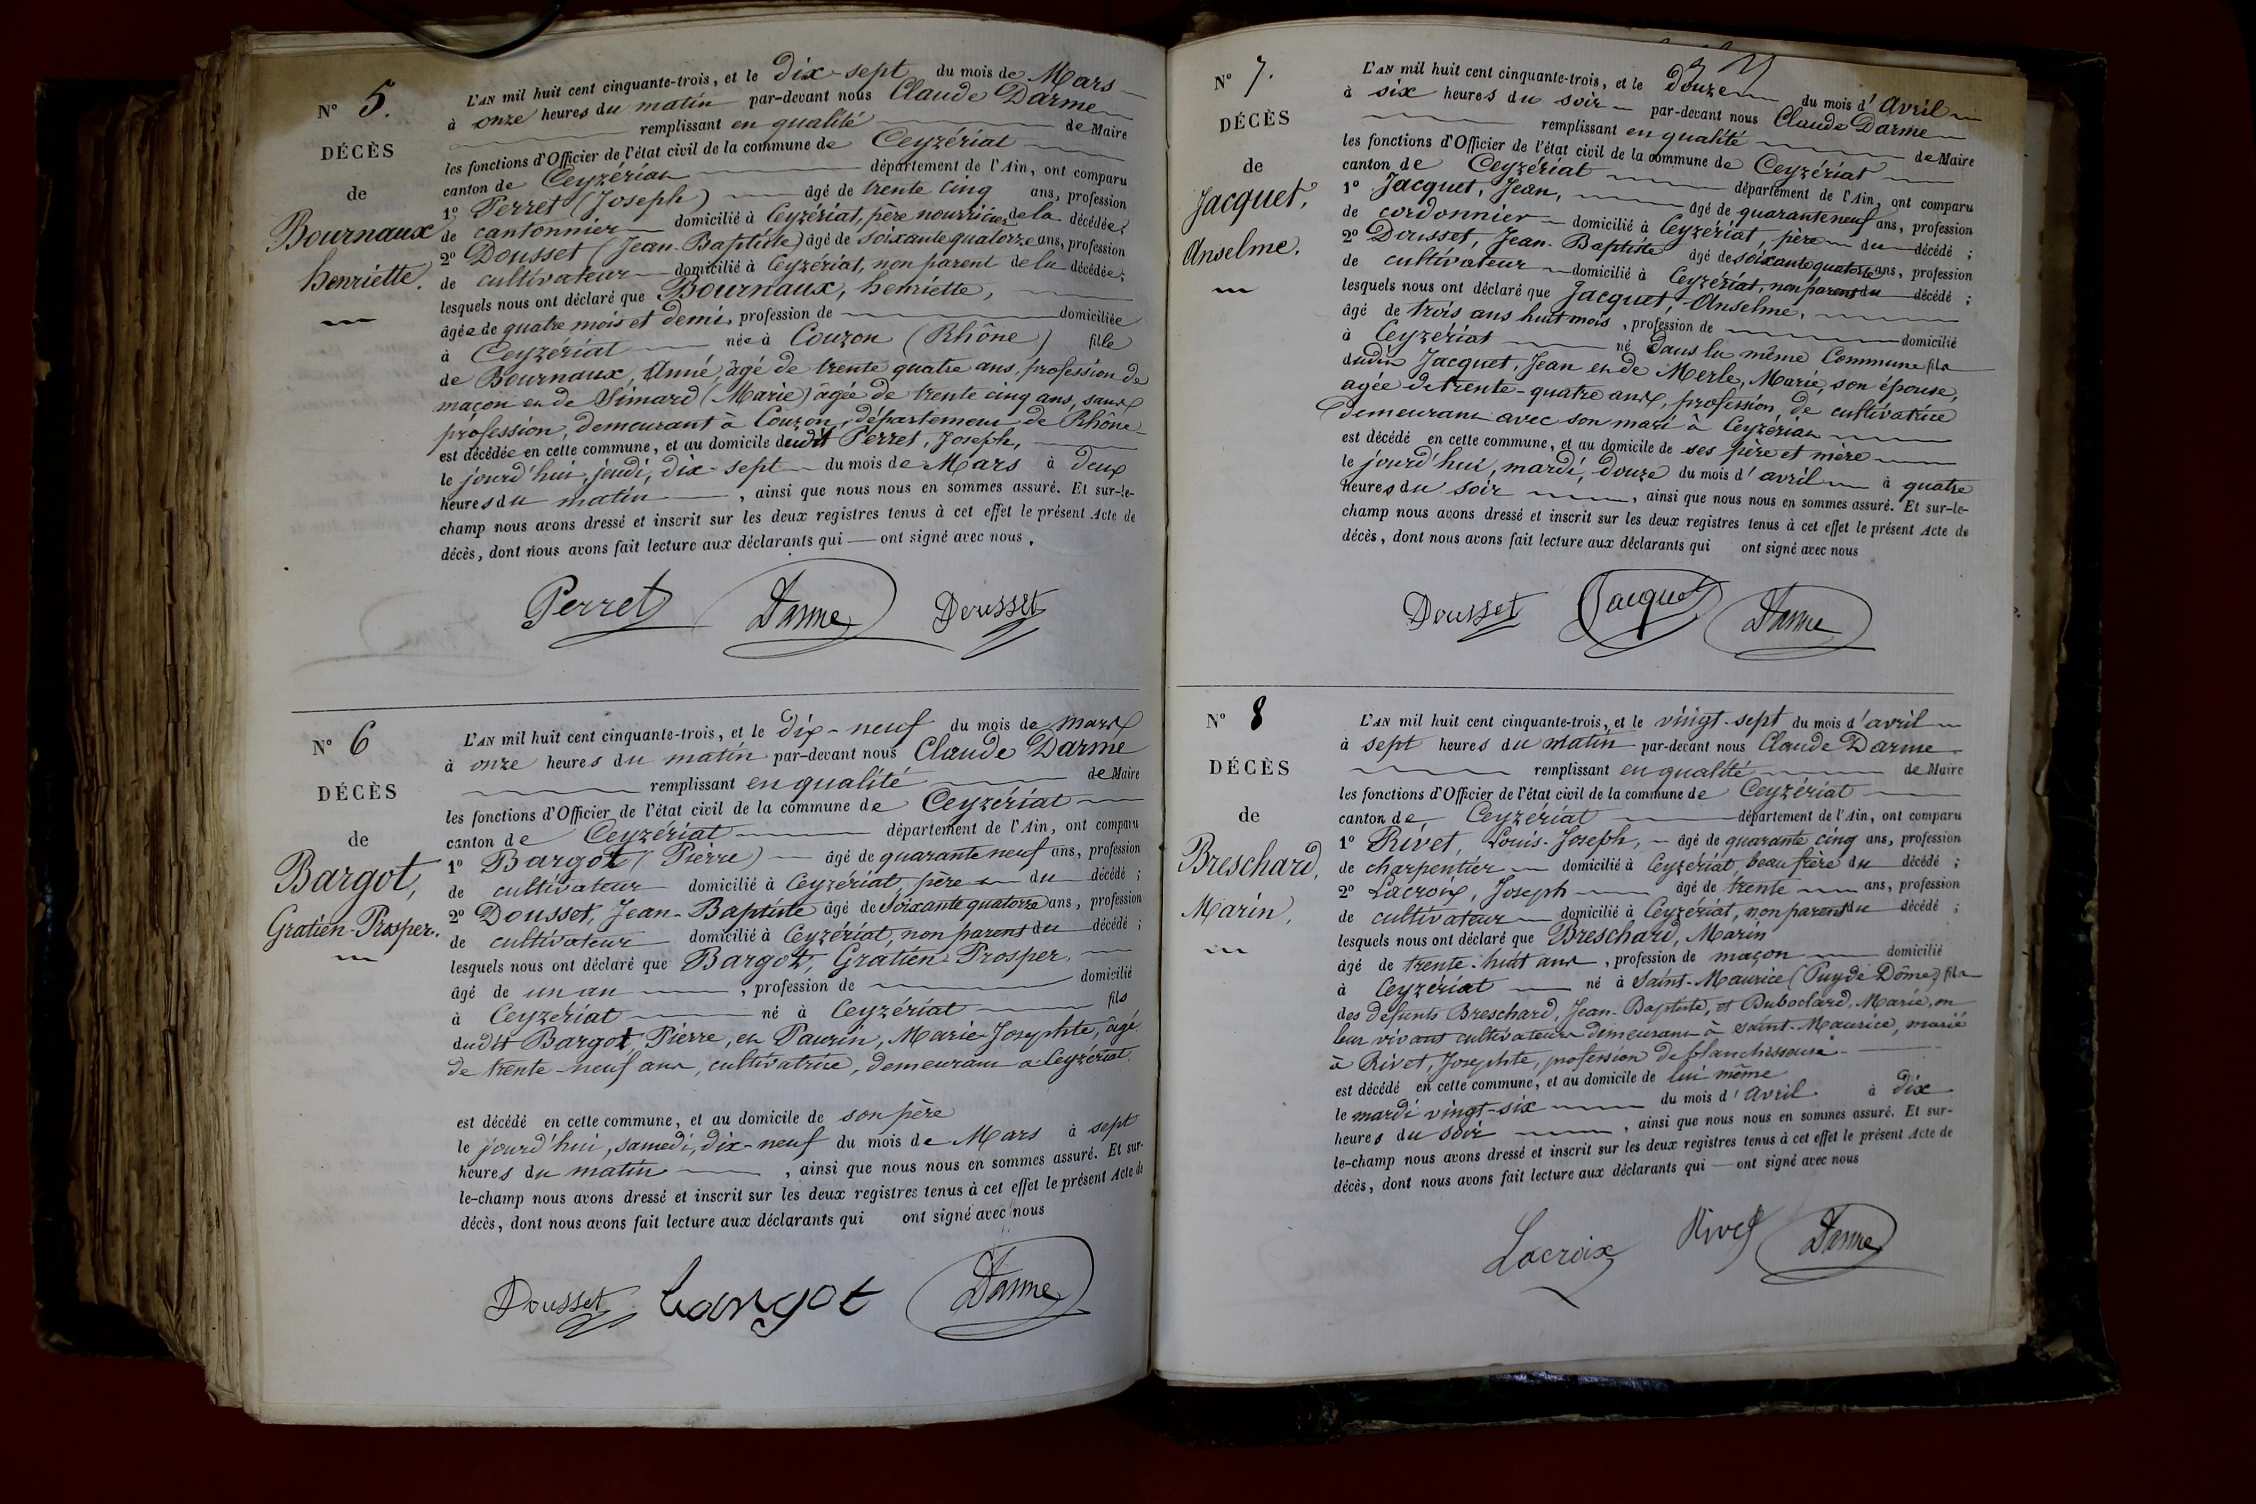 N° 5.
DÉCÈS
de
Bournaux
henriette.
L'AN mil huit cent cinquante-trois, et le dix-sept du mois de Mars
à onze heures du matin par-devant nous Claude Darme
remplissant en qualité de Maire
les fonctions d'Officier de l'état civil de la commune de Ceyzériat
canton de Ceyzériat département de l'Ain, ont comparu
1° Perret (Joseph) âgé de trente cinq ans, profession
de cantonnier domicilié à Ceyzériat, père nourricier de la décédée;
2° Dousset (Jean-Baptiste) âgé de soixante quatorze ans, profession
de cultivateur domicilié à Ceyzériat, non parent de la décédée;
lesquels nous ont déclaré que Bournaux, henriette,
âgée de quatre mois et demi, profession de domiciliée
à Ceyzériat née à Couzon (Rhône) fille
de Bournaux, Anné, âgé de trente quatre ans, profession de
maçon et de Simard (Marie) âgée de trente cinq ans, sans
profession, demeurant à Couzon, département de Rhône
est décédée en cette commune, et au domicile dudit Perret, Joseph,
le jourd'hui, jeudi, dix-sept du mois de Mars à deux
heures du matin, ainsi que nous nous en sommes assuré. Et sur-le-
champ nous avons dressé et inscrit sur les deux registres tenus à cet effet le présent Acte de
décès, dont nous avons fait lecture aux déclarants qui ont signé avec nous.
Perret Darme Dousset
N° 6
DÉCÈS
de
Bargot,
Gratien-Prosper.
L'AN mil huit cent cinquante-trois, et le dix-neuf du mois de mars
à onze heures du matin par-devant nous Claude Darme
remplissant en qualité de Maire
les fonctions d'Officier de l'état civil de la commune de Ceyzériat
canton de Ceyzériat département de l'Ain, ont comparu
1° Bargot (Pierre) âgé de quarante neuf ans, profession
de cultivateur domicilié à Ceyzériat, père du décédé;
2° Dousset, Jean-Baptiste âgé de soixante quatorze ans, profession
de cultivateur domicilié à Ceyzériat, non parent du décédé;
lesquels nous ont déclaré que Bargot, Gratien Prosper,
âgé de un an, profession de domicilié
à Ceyzériat né à Ceyzériat fils
dudit Bargot, Pierre, et Paurin, Marie Josephte, âgé
de trente-neuf ans, cultivatrice, demeurant à Ceyzériat.
est décédé en cette commune, et au domicile de son père
le jourd'hui, samedi, dix-neuf du mois de Mars à sept
heures du matin, ainsi que nous nous en sommes assuré. Et sur-
le-champ nous avons dressé et inscrit sur les deux registres tenus à cet effet le présent Acte de
décès, dont nous avons fait lecture aux déclarants qui ont signé avec nous
Dousset bargot Darme
N° 7.
DÉCÈS
de
Jacquet,
Anselme.
L'AN mil huit cent cinquante-trois, et le douze du mois d'avril
à six heures du soir par-devant nous Claude Darme
remplissant en qualité de Maire
les fonctions d'Officier de l'état civil de la commune de Ceyzériat
canton de Ceyzériat département de l'Ain, ont comparu
1° Jacquet, Jean, âgé de quarante neuf ans, profession
de cordonnier domicilié à Ceyzériat, père du décédé;
2° Dousset, Jean-Baptiste âgé de soixante quatorze ans, profession
de cultivateur domicilié à Ceyzériat, non parent du décédé;
lesquels nous ont déclaré que Jacquet, Anselme,
âgé de trois ans huit mois, profession de domicilié
à Ceyzériat né dans la même Commune fils
dudit Jacquet, Jean et de Merle, Marie, son épouse,
agée de trente-quatre ans, profession de cultivatrice
demeurant avec son mari à Ceyzériat
est décédé en cette commune, et au domicile de ses père et mère
le jourd'hui, mardi, douze du mois d'avril à quatre
heures du soir, ainsi que nous nous en sommes assuré. Et sur-le-
champ nous avons dressé et inscrit sur les deux registres tenus à cet effet le présent Acte de
décès, dont nous avons fait lecture aux déclarants qui ont signé avec nous
Dousset Jacquet Darme
N° 8
DÉCÈS
de
Breschard,
Marin,
L'AN mil huit cent cinquante-trois, et le vingt-sept du mois d'avril
à sept heures du matin par-devant nous Claude Darme
remplissant en qualité de Maire
les fonctions d'Officier de l'état civil de la commune de Ceyzériat
canton de Ceyzériat département de l'Ain, ont comparu
1° Rivet, Louis-Joseph, âgé de quarante cinq ans, profession
de charpentier domicilié à Ceyzériat, beau frère du décédé;
2° Lacroix, Joseph âgé de trente ans, profession
de cultivateur domicilié à Ceyzériat, non parent du décédé;
lesquels nous ont déclaré que Breschard, Marin
âgé de trente-huit ans, profession de maçon domicilié
à Ceyzériat né à Saint-Maurice (Puy de Dôme) fils
des défunts Breschard, Jean-Baptiste, et Duboclard, Marie, en
leur vivant cultivateurs demeurant à Saint-Maurice, marié
à Rivet, Josephte, profession de blanchisseuse
est décédé en cette commune, et au domicile de lui même
le mardi vingt-six du mois d'avril à dix
heures du soir, ainsi que nous nous en sommes assuré. Et sur-
le-champ nous avons dressé et inscrit sur les deux registres tenus à cet effet le présent Acte de
décès, dont nous avons fait lecture aux déclarants qui ont signé avec nous
Lacroix Rivet Darme